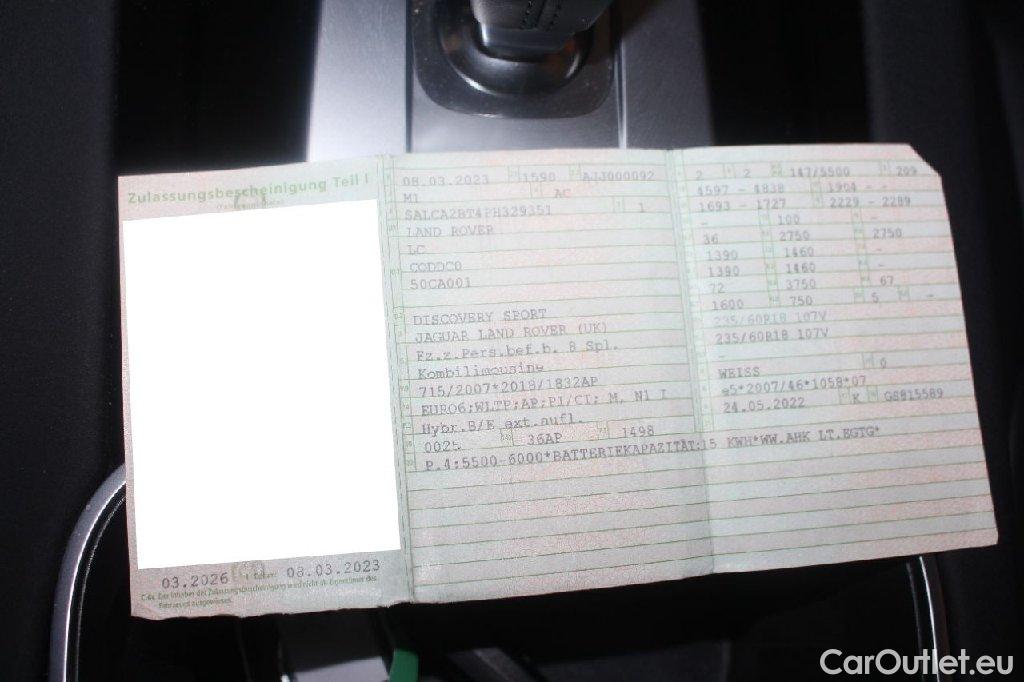 Zulassungsbescheinigung Teil I
03.2026 I Datum: 08.03.2023
C.4c Der Inhaber der Zulassungsbescheinigung wird nicht als Eigentümer des
Fahrzeugs ausgewiesen.
08.03.2023 1590 AJJ000092
M1 AC
SALCA2BT4PH329351 1
LAND ROVER
LC
CODDC0
50CA001
DISCOVERY SPORT
JAGUAR LAND ROVER (UK)
Fz.z.Pers.bef.b. 8 Spl.
Kombilimousine
715/2007*2018/1832AP
EURO6;WLTP;AP;PI/CI; M, N1 I
Hybr.B/E ext.aufl.
0025 36AP 1498
P.4:5500-6000*BATTERIEKAPAZITÄT:15 KWH*WW.AHK LT.EGTG*
2 2 147/5500 209
4597 - 4838 1904 - -
1693 - 1727 2229 - 2289
- 100
36 2750 2750
1390 1460 -
1390 1460 -
72 3750 67
1600 750 5 -
235/60R18 107V
235/60R18 107V
-
WEISS 0
e5*2007/46*1058*07
24.05.2022 K GS815589
CarOutlet.eu